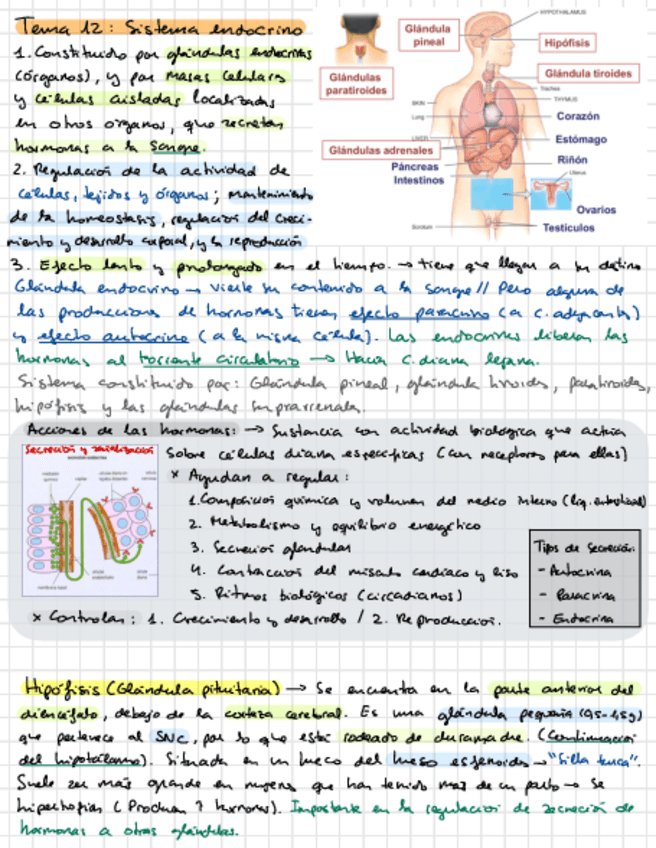 Tema 12: Sistema endocrino
1. Constituido por glándulas endocrinas
(órganos), y por masas celulares
y células aisladas localizadas
en otros órganos, que secretan
hormonas a la sangre.
2. Regulación de la actividad de
células, tejidos y órganos; mantenimiento
de la homeostasis, regulación del creci-
miento y desarrollo corporal, y la reproducción
HYPOTHALAMUS
Glándula
pineal
Hipófisis
Glándulas
paratiroides
Glándula tiroides
Trachea
THYMUS
SKIN
Lung
Corazón
LIVER
Estómago
Glándulas adrenales
Riñón
Páncreas
Intestinos
Uterus
Ovarios
Scrotum
Testículos
3. Efecto lento y prolongado en el tiempo. → tiene que llegar a su destino
Glándula endocrino → vierte su contenido a la sangre // Pero alguna de
las producciones de hormonas tienen efecto paracrino (a c. adyacentes)
y efecto autocrino (a la misma célula). Las endocrinas liberan las
hormonas al torrente circulatorio → Hacia c. diana lejana.
Sistema constituido por: Glándula pineal, glándula tiroides, paratiroides,
hipófisis y las glándulas suprarrenales.
Acciones de las hormonas: → Sustancia con actividad biológica que actúa
sobre células diana específicas (con receptores para ellas)
Secreción y señalización
membrana basal
× Ayudan a regular:
1. Composición química y volumen del medio interno (liq. intersticial)
2. Metabolismo y equilibrio energético
3. Secreción glandular
4. Contracción del músculo cardiaco y liso
5. Ritmos biológicos (circadianos)
Tipos de secreción:
- Autocrina
- Paracrina
- Endocrina
× Controlan: 1. Crecimiento y desarrollo / 2. Reproducción.
Hipófisis (Glándula pituitaria) → Se encuentra en la parte anterior del
diencéfalo, debajo de la corteza cerebral. Es una glándula pequeña
que pertenece al SNC, por lo que está rodeado de duramadre. (Continuación
del hipotálamo). Situada en un hueco del hueso esfenoides → "Silla turca".
Suele ser más grande en mujeres que han tenido más de un parto → Se
hipertrofian (Producen ↑ hormonas). Importante en la regulación de secreción de
hormonas a otras glándulas.